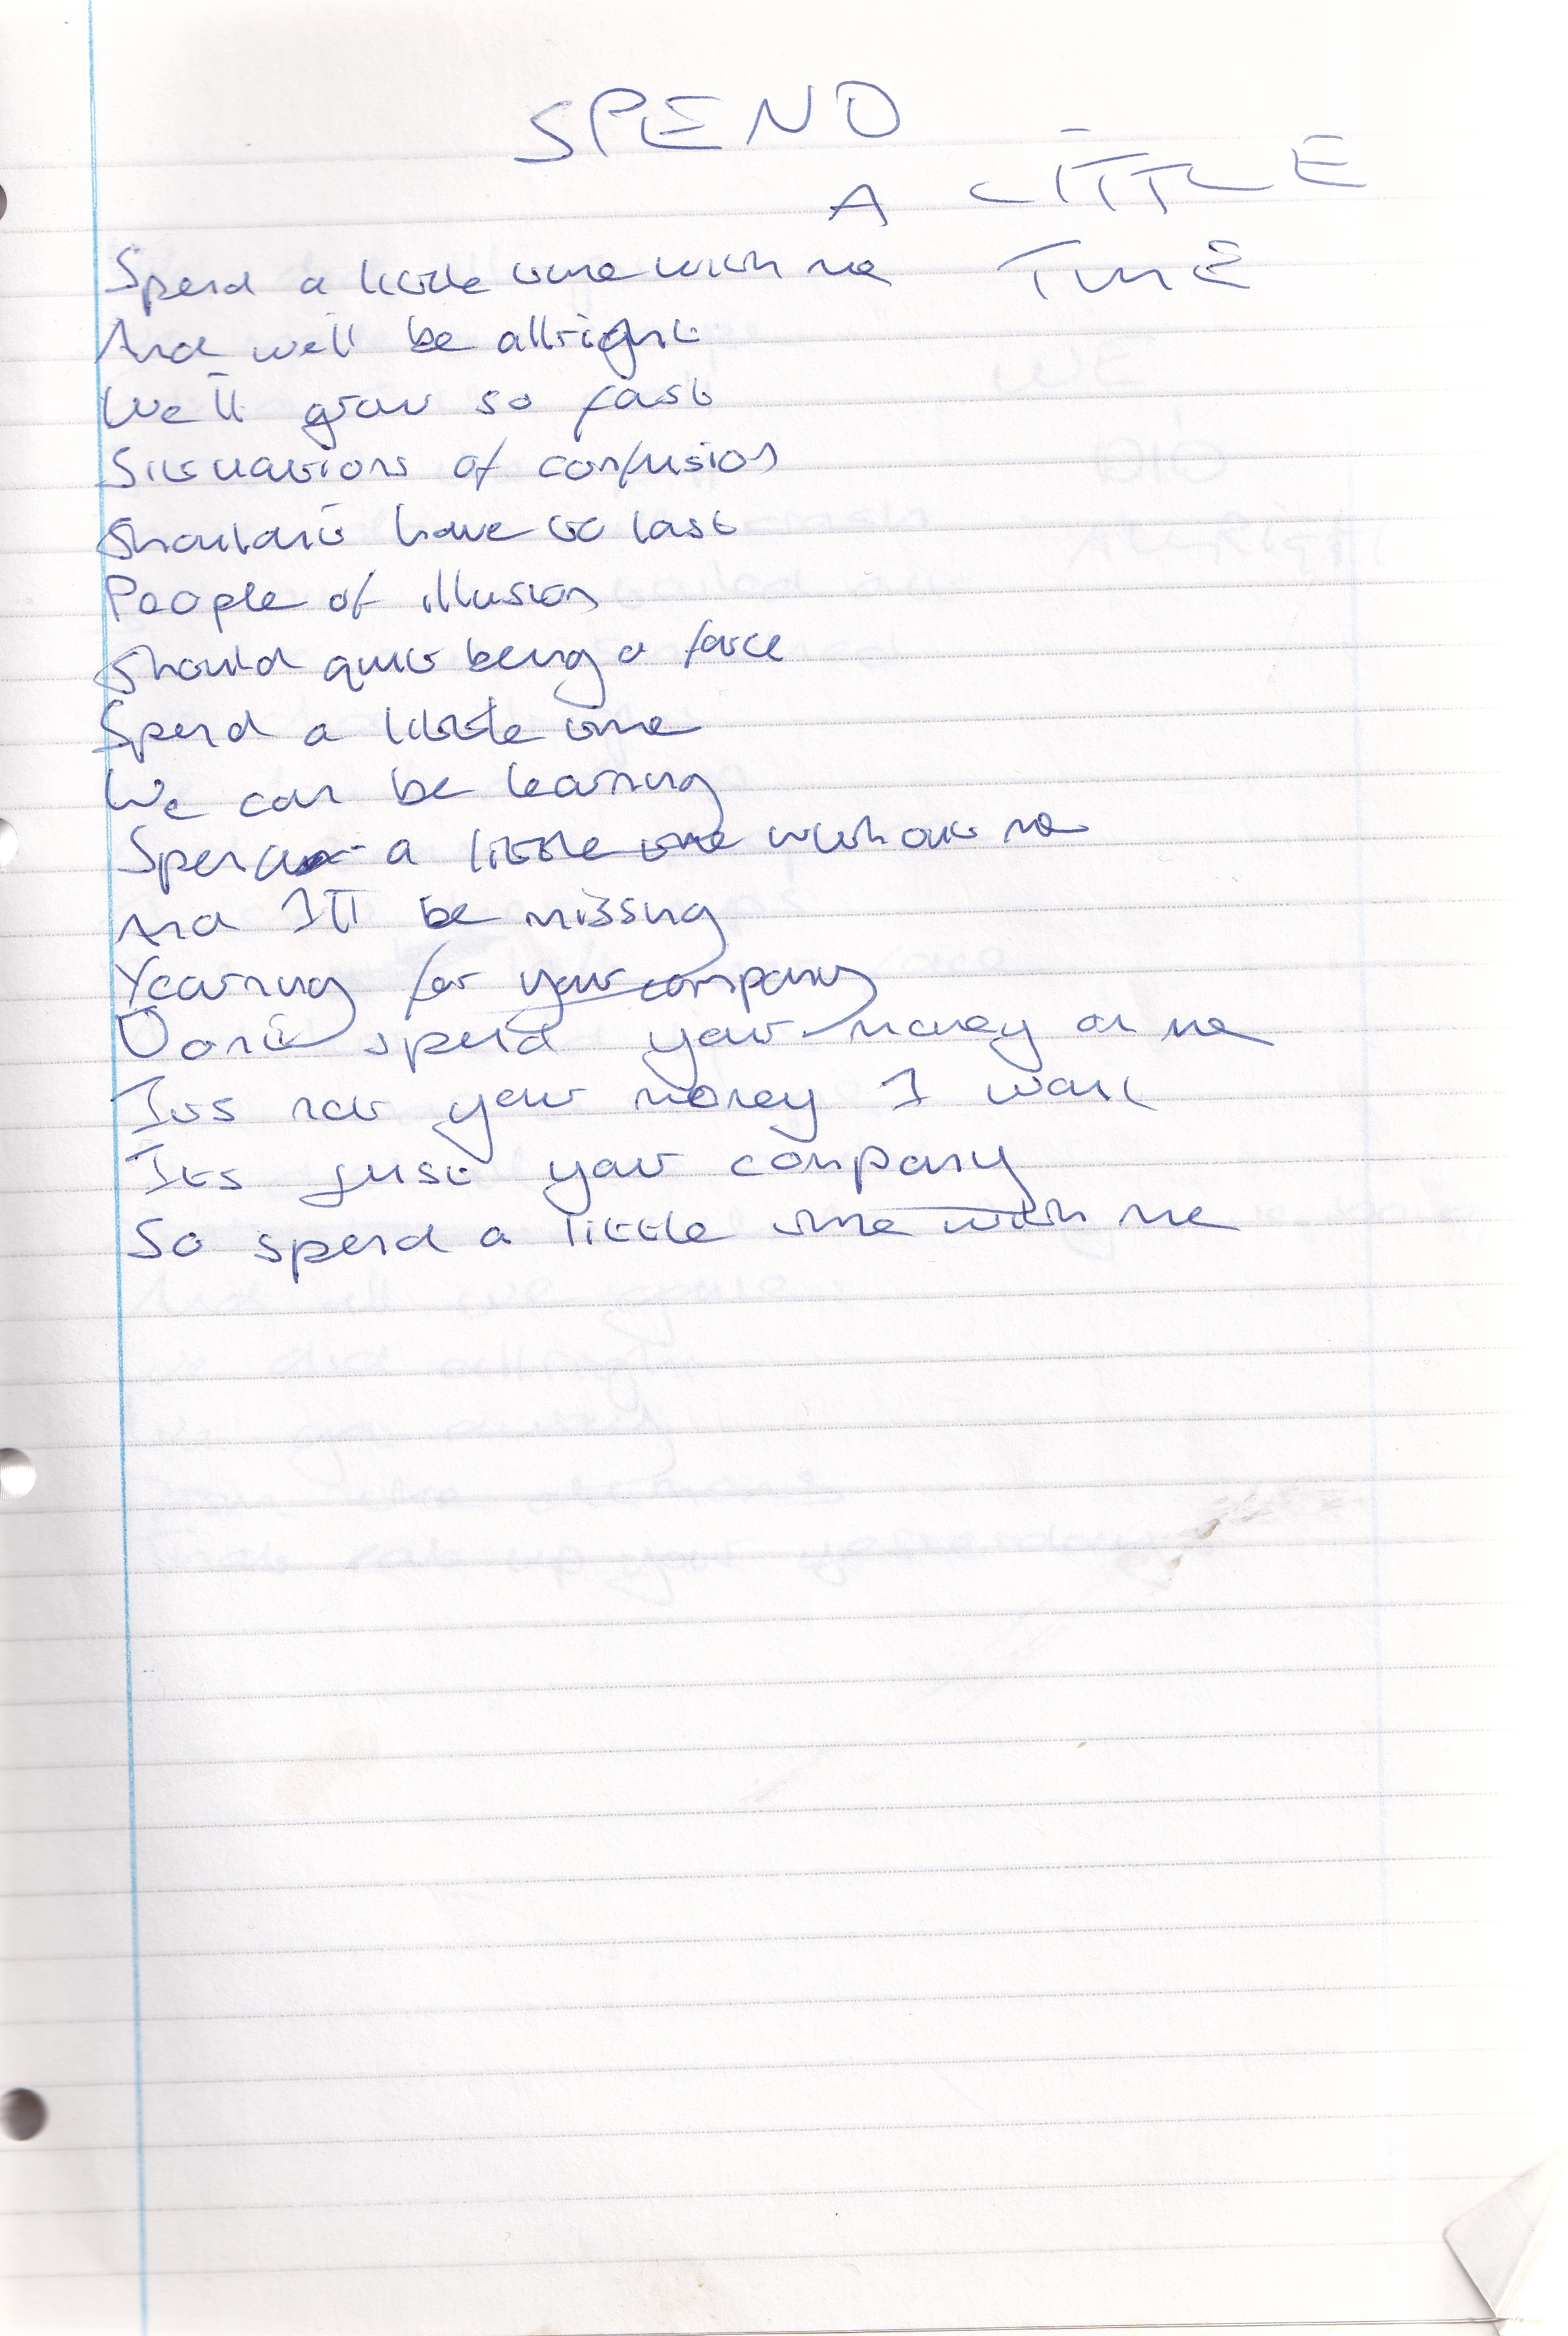 SPEND
A LITTLE
TIME
Spend a little time with me
And we'll be allright
We'll grow so fast
Situations of confusion
Shouldn't have to last
People of illusion
Should quit being a farce
Spend a little time
We can be learning
Spend a little time without me
And I'll be missing
Yearning for your company
Don't spend your money on me
Its not your money I want
Its just your company
So spend a little time with me